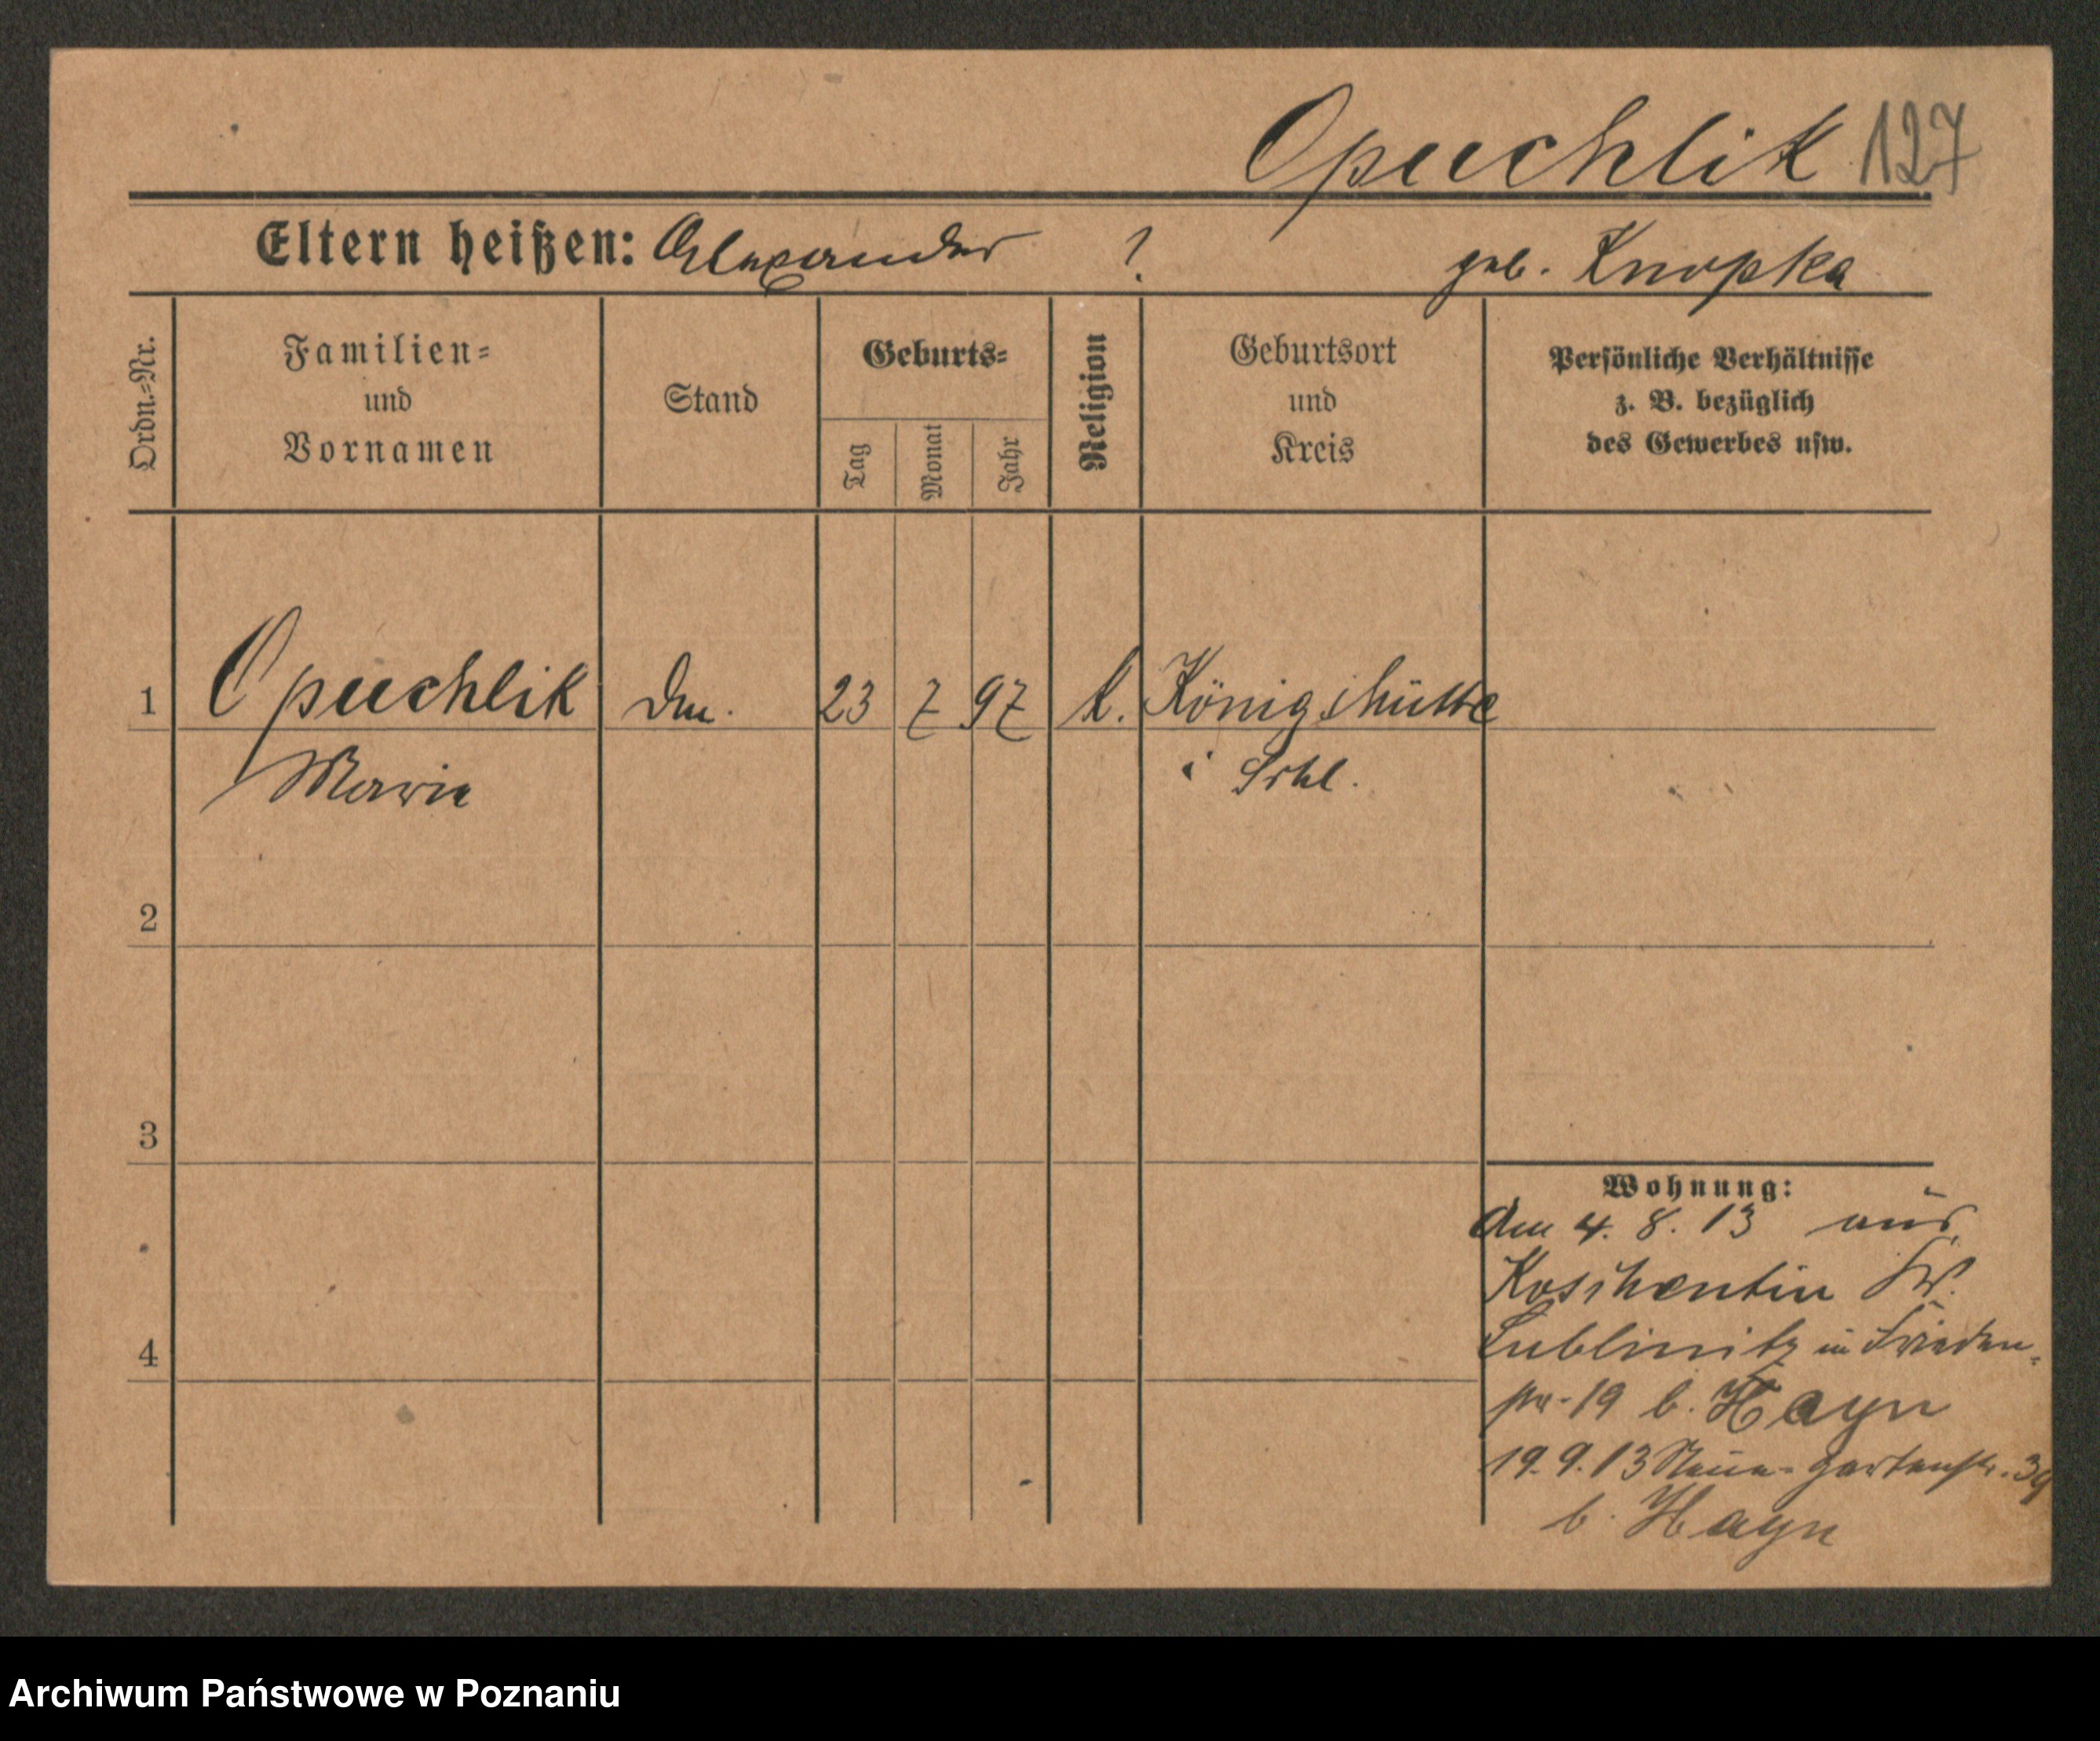 Opuchlik 127
Eltern heißen: Alexander ? geb. Knopka
Ordn.=Nr.
Familien=
und
Vornamen
Stand
Geburts=
Tag
Monat
Jahr
Religion
Geburtsort
und
Kreis
Persönliche Verhältnisse
z. B. bezüglich
des Gewerbes usw.
1 Opuchlik 23 7 97 k. Königshütte
Marie i Schl.
2
3
4
Wohnung:
Am 4. 8. 13 aus
Koschentin Kr.
Lublinitz in Frieden-
str. 19 b. Hayn
19. 9. 13 Neue-Gartenstr. 39
b. Hayn
Archiwum Państwowe w Poznaniu